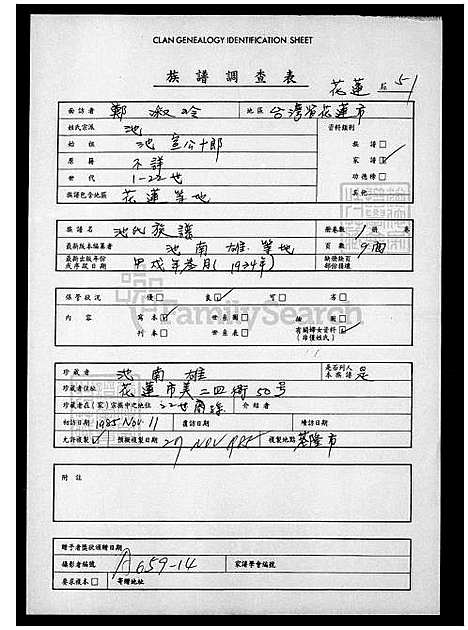 CLAN GENEALOGY IDENTIFICATION SHEET
族譜調查表
花蓮 起 51
面訪者 鄭淑玲 地區 台灣省花蓮市
姓氏宗派 池 資料類別
始祖 池宣公十郎 族譜
原籍 不詳 家譜 ✓
世代 1-22世 功德榜
族譜包含地區 花蓮等地 其他
族譜名 池氏族譜 冊卷數 1 冊 卷
最新版本編纂者 池南雄等地 頁數 9面
最新出版年份或序跋日期 甲戌年 月(1934年) 缺冊缺頁部份損壞
保管狀況 優 良 ✓ 可 劣
內容 寫本 ✓ 世系圖
刊本 世系表 有關婦女資料(非僅姓氏) ✓
FamilySearch
珍藏者 池南雄 是否列入本族譜 是
珍藏者住址 花蓮市美二四街50号
珍藏者在(家)宗族中之地位 22世裔孫 介紹者
初訪日期 1985 Nov 11 復訪日期 續訪日期
允許複製 ✓ 預擬複製日期 27 NOV 1985 複製地點 基隆市
附註
贈予者獎狀頒贈日期
攝影者編號 A659-14 家譜學會編號
要求複本 寄贈地址